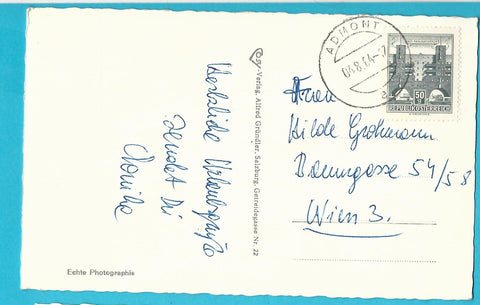 Herzliche Urlaubsgrüße
sendet Dir
Monika
Echte Photographie
-Verlag, Alfred Gründler, Salzburg, Getreidegasse Nr. 22
ADMONT
06.8.64-17
50
REPUBLIK ÖSTERREICH
Frau
Hilde Grohmann
Baumgasse 54/58
Wien 3.